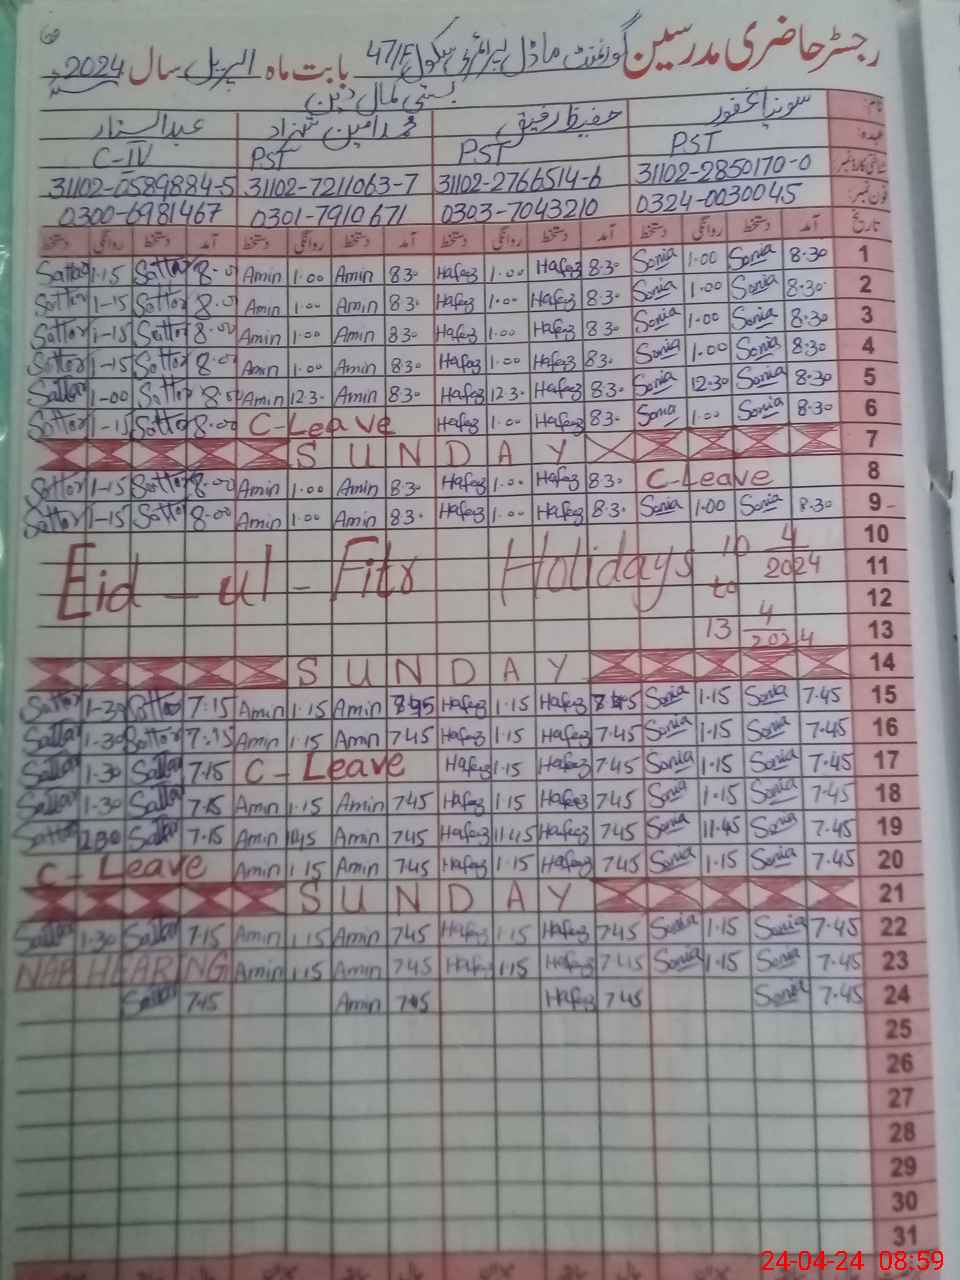 رجسٹر حاضری مدرسین گورنمنٹ ماڈل پرائمری سکول 47/F بابت ماہ اپریل سال 2024
بستی کمال دین
نام: سونیا غفور حفیظ رفیق محمد امین شہزاد عبدالستار
عہدہ: PST PST PST C-IV
31102-0589884-5 31102-7211063-7 31102-2766514-6 31102-2850170-0
فون نمبر: 0300-6981467 0301-7910671 0303-7043210 0324-0030045
تاریخ آمد دستخط روانگی دستخط آمد دستخط روانگی دستخط آمد دستخط روانگی دستخط آمد دستخط روانگی دستخط
Sattar 1-15 Sattar 8.00 Amin 1.00 Amin 8.30 Hafeez 1.00 Hafeez 8.30 Sonia 1.00 Sonia 8.30 1
Sattar 1-15 Sattar 8.00 Amin 1.00 Amin 8.30 Hafeez 1.00 Hafeez 8.30 Sonia 1.00 Sonia 8.30 2
Sattar 1-15 Sattar 8.00 Amin 1.00 Amin 8.30 Hafeez 1.00 Hafeez 8.30 Sonia 1.00 Sonia 8.30 3
Sattar 1-15 Sattar 8.00 Amin 1.00 Amin 8.30 Hafeez 1.00 Hafeez 8.30 Sonia 1.00 Sonia 8.30 4
Sattar 1-00 Sattar 8.00 Amin 12.30 Amin 8.30 Hafeez 12.30 Hafeez 8.30 Sonia 12.30 Sonia 8.30 5
Sattar 1-15 Sattar 8.00 C-Leave Hafeez 1.00 Hafeez 8.30 Sonia 1.00 Sonia 8.30 6
SUNDAY 7
Sattar 1-15 Sattar 8.00 Amin 1.00 Amin 8.30 Hafeez 1.00 Hafeez 8.30 C-Leave 8
Sattar 1-15 Sattar 8.00 Amin 1.00 Amin 8.30 Hafeez 1.00 Hafeez 8.30 Sonia 1.00 Sonia 8.30 9
10
Eid-ul-Fitr Holidays 10 4/2024 11
to 12
13 4/2024 13
SUNDAY 14
Sattar 1-30 Sattar 7:15 Amin 1.15 Amin Hafeez 1.15 Hafeez Sonia 1.15 Sonia 7.45 15
Sattar 1-30 Sattar 7:15 Amin 1.15 Amin 7.45 Hafeez 1.15 Hafeez 7.45 Sonia 1.15 Sonia 7.45 16
Sattar 1-30 Sattar 7.15 C-Leave Hafeez 1.15 Hafeez 7.45 Sonia 1.15 Sonia 7.45 17
Sattar 1-30 Sattar 7.15 Amin 1.15 Amin 7.45 Hafeez 1.15 Hafeez 7.45 Sonia 1.15 Sonia 7.45 18
Sattar Sattar 7.15 Amin Amin 7.45 Hafeez 11.45 Hafeez 7.45 Sonia 11.45 Sonia 7.45 19
C-Leave Amin 1.15 Amin 7.45 Hafeez 1.15 Hafeez 7.45 Sonia 1.15 Sonia 7.45 20
SUNDAY 21
Sattar 1.30 Sattar 7.15 Amin 1.15 Amin 7.45 Hafeez 1.15 Hafeez 7.45 Sonia 1.15 Sonia 7.45 22
NAB HEARING Amin 1.15 Amin 7.45 Hafeez 1.15 Hafeez 7.45 Sonia 1.15 Sonia 7.45 23
Sattar 7.15 Amin 7.45 Hafeez 7.45 Sonia 7.45 24
25
26
27
28
29
30
31
24-04-24 08:59